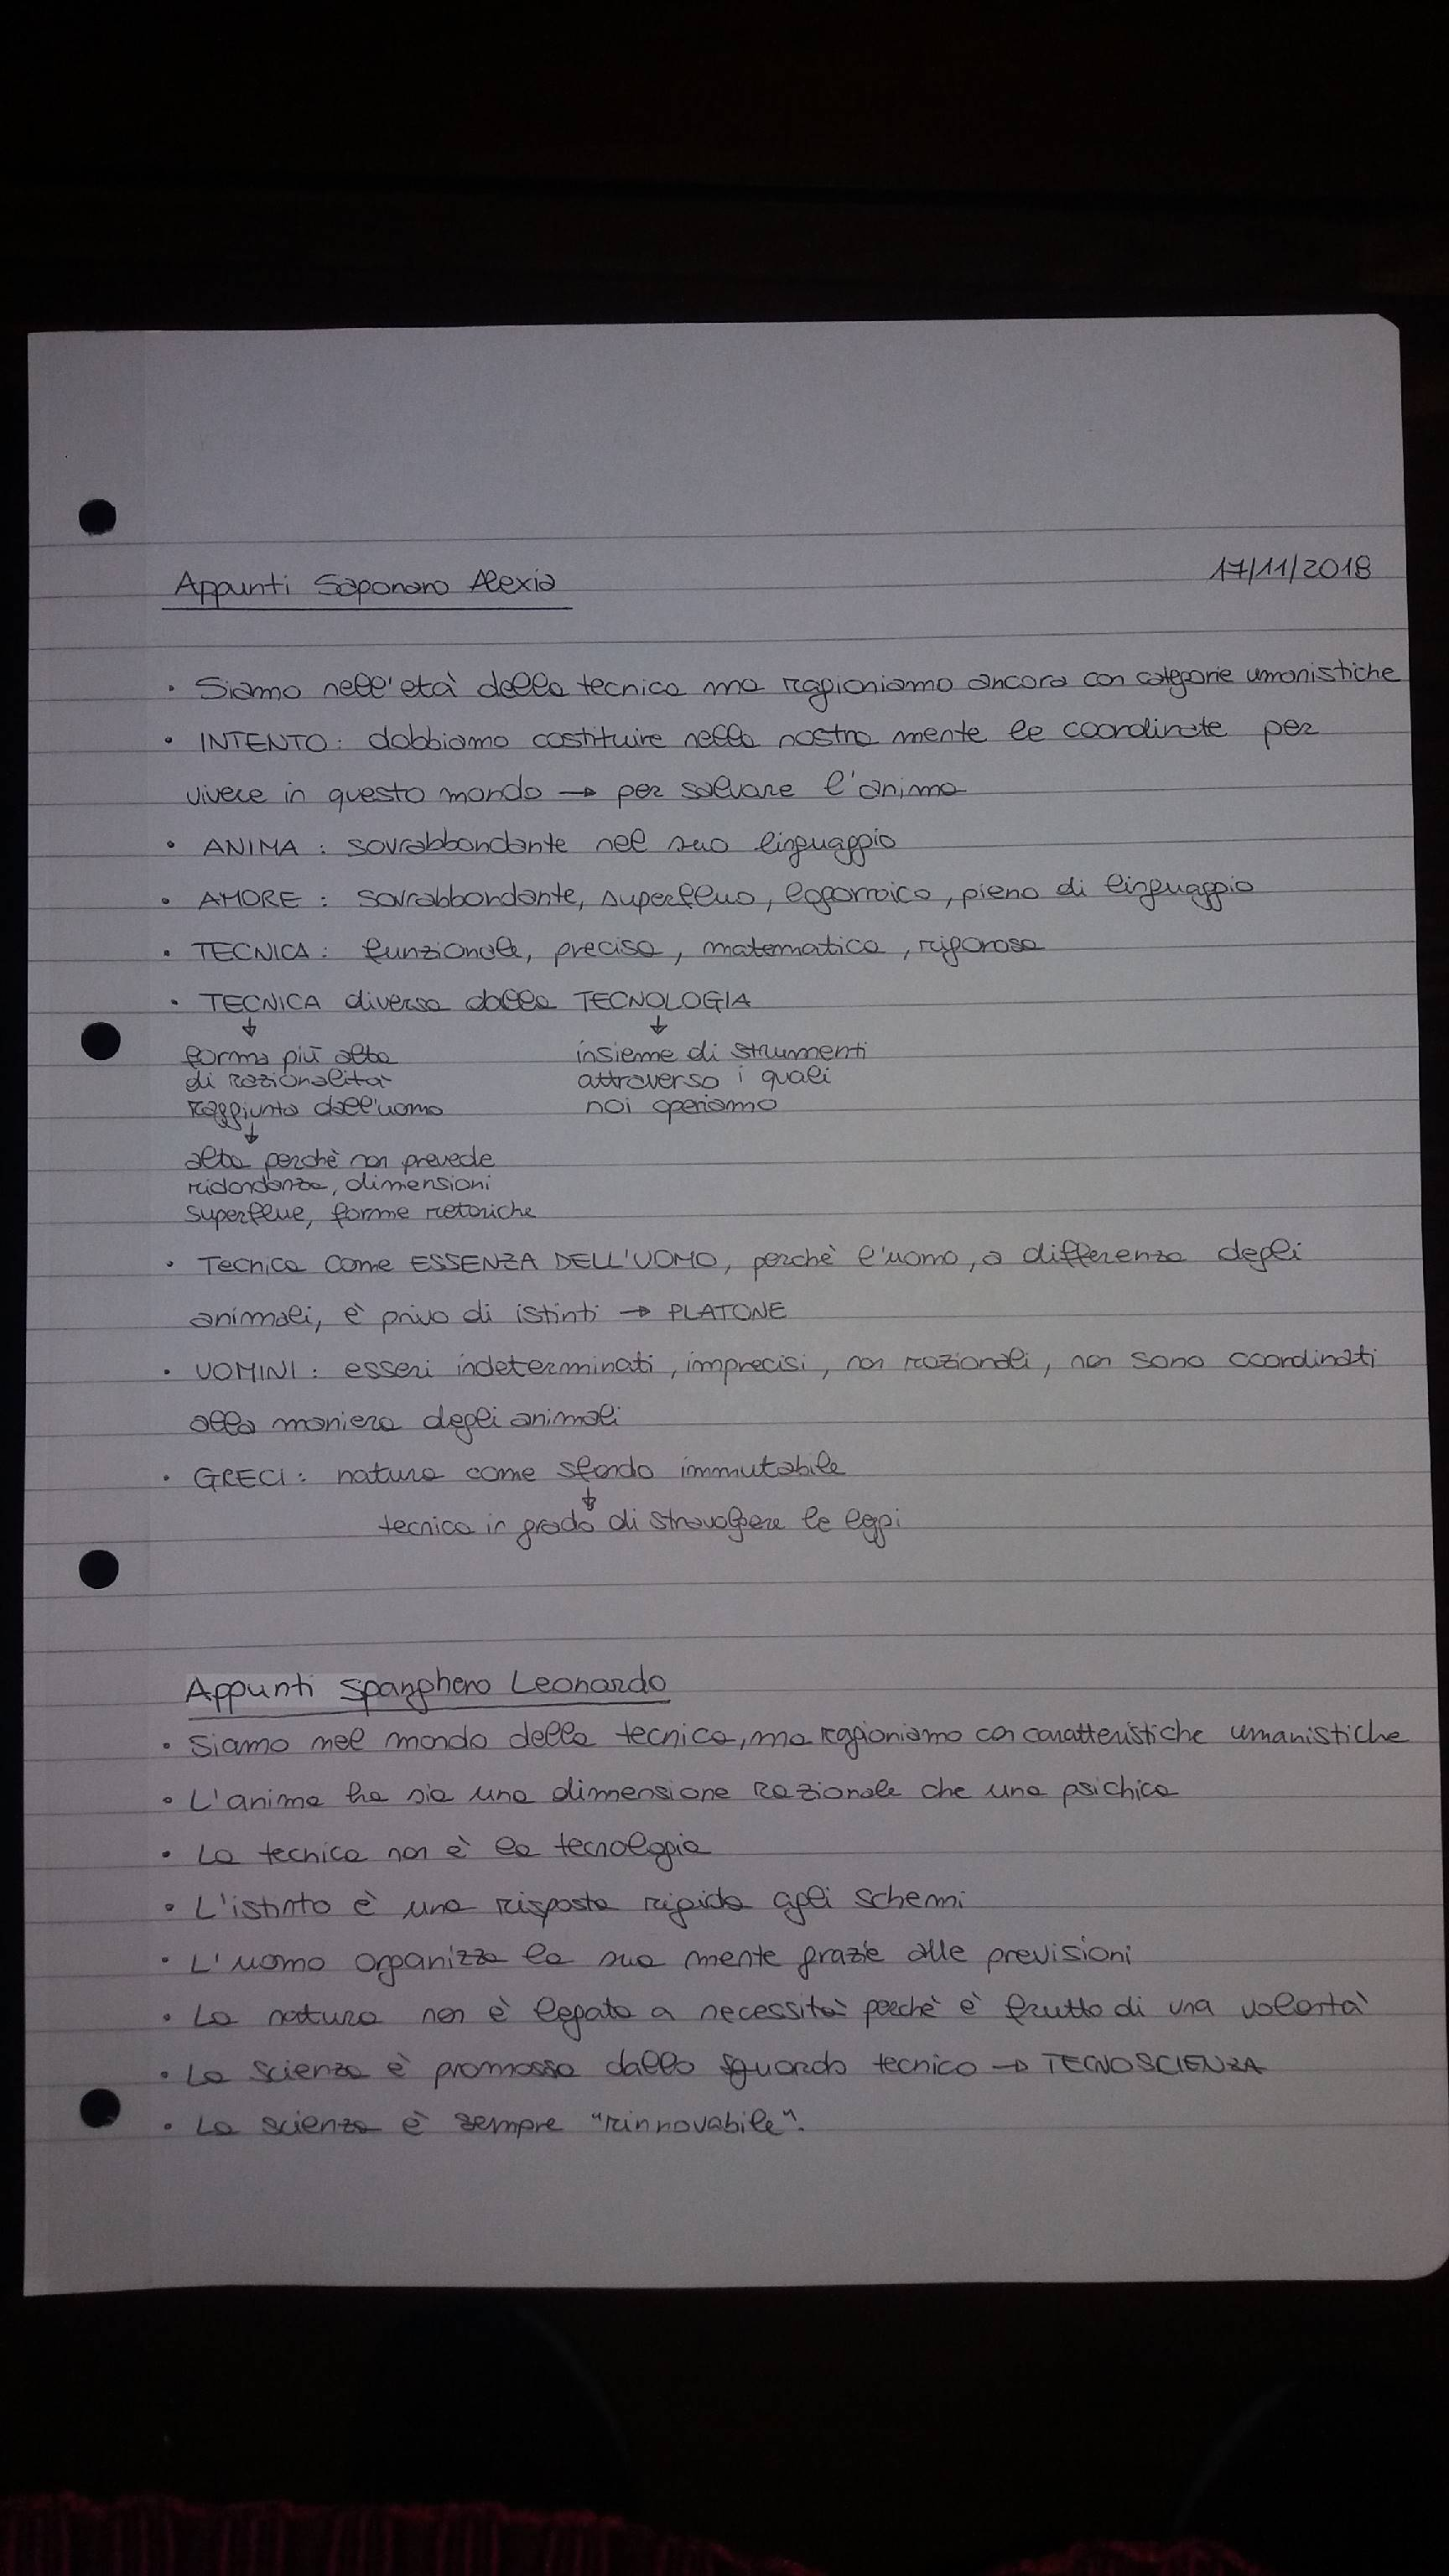 Appunti Saponaro Alexia
17/11/2018
• Siamo nell'età della tecnica ma ragioniamo ancora con categorie umanistiche
• INTENTO: dobbiamo costituire nella nostra mente le coordinate per
vivere in questo mondo → per salvare l'anima
• ANIMA: sovrabbondante nel suo linguaggio
• AMORE: sovrabbondante, superfluo, logorroico, pieno di linguaggio
• TECNICA: funzionale, precisa, matematica, rigorosa
• TECNICA diversa dalla TECNOLOGIA
↓ ↓
forma più alta insieme di strumenti
di razionalità attraverso i quali
raggiunta dall'uomo noi operiamo
↓
alta perchè non prevede
ridondanza, dimensioni
superflue, forme retoriche
• Tecnica come ESSENZA DELL'UOMO, perchè l'uomo, a differenza degli
animali, è privo di istinti → PLATONE
• UOMINI: esseri indeterminati, imprecisi, non razionali, non sono coordinati
alla maniera degli animali
• GRECI: natura come sfondo immutabile
↓
tecnica in grado di stravolgere le leggi
Appunti Spanghero Leonardo
• Siamo nel mondo della tecnica, ma ragioniamo con caratteristiche umanistiche
• L'anima ha sia una dimensione razionale che una psichica
• La tecnica non è la tecnologia
• L'istinto è una risposta rigida agli schemi
• L'uomo organizza la sua mente grazie alle previsioni
• La natura non è legata a necessità perchè è frutto di una volontà
• La scienza è promossa dallo sguardo tecnico → TECNOSCIENZA
• La scienza è sempre "rinnovabile".